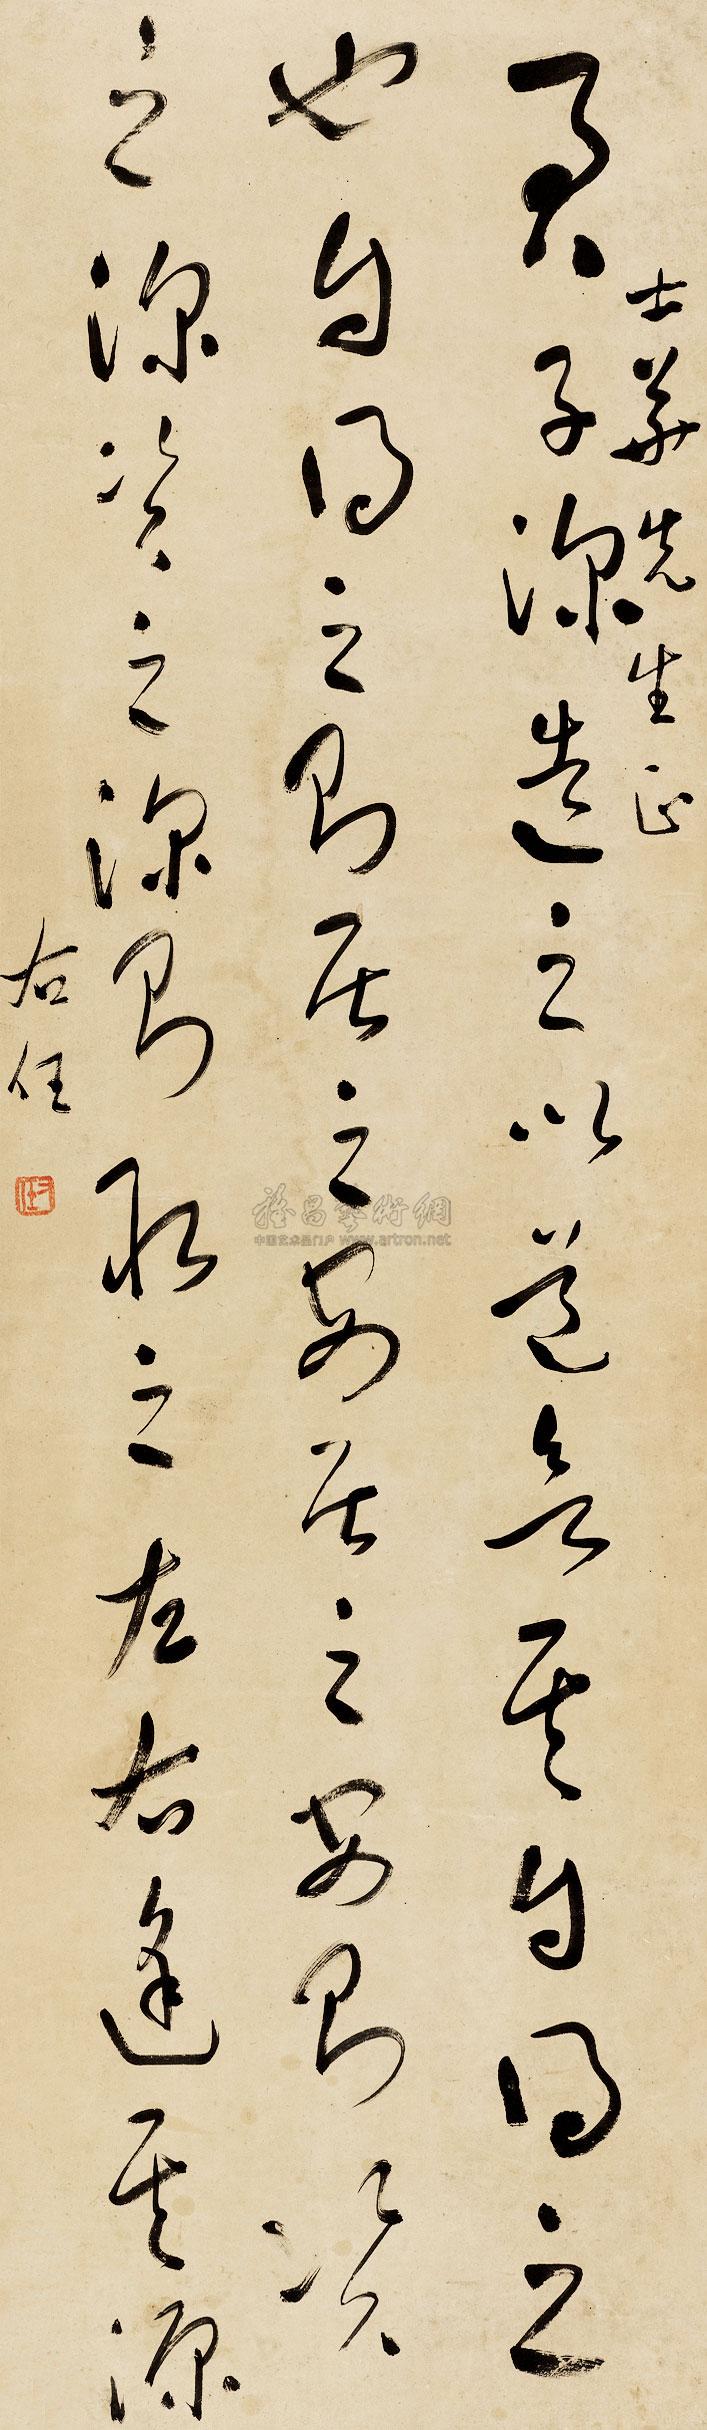 士華先生正
君子深造之以道欲其自得之
也自得之則居之安居之安則資
之深資之深則取之左右逢其源
右任
右任
雅昌藝術網
中国艺术品门户 www.artron.net